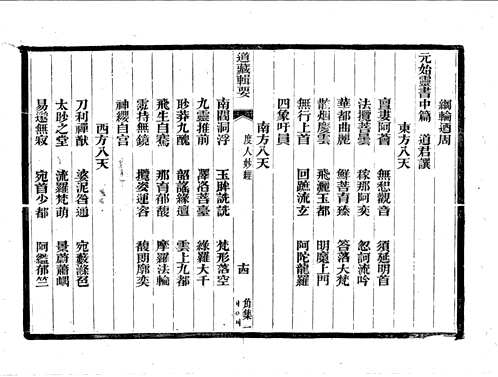 綱輪迺周
元始靈書中篇 道君譔
東方八天
亶婁阿薈 無惒觀音 須延明首
法攬菩曇 稼那阿奕 忽訶流吟
華都曲麗 鮮菩育臻 答落大梵
散烟慶雲 飛灑玉都 明魔上門
無行上首 回蹠流玄 阿陀龍羅
四象吁員
南方八天
道藏輯要 度人妙經 十四 角集一
南閻洞浮 玉眸詵詵 梵形落空
九靈推前 澤洛菩臺 綠羅大千
眇莽九醜 韶謡緣邅 雲上九都
飛生自騫 那育郁馥 摩羅法輪
霐持無鏡 攬姿運容 馥朗廓奕
神纓自宮
西方八天
刀利禪猷 婆泥咎通 宛藪滌色
太眇之堂 流羅梵萌 景蔚蕭嵎
易邈無寂 宛首少都 阿濫郁竺